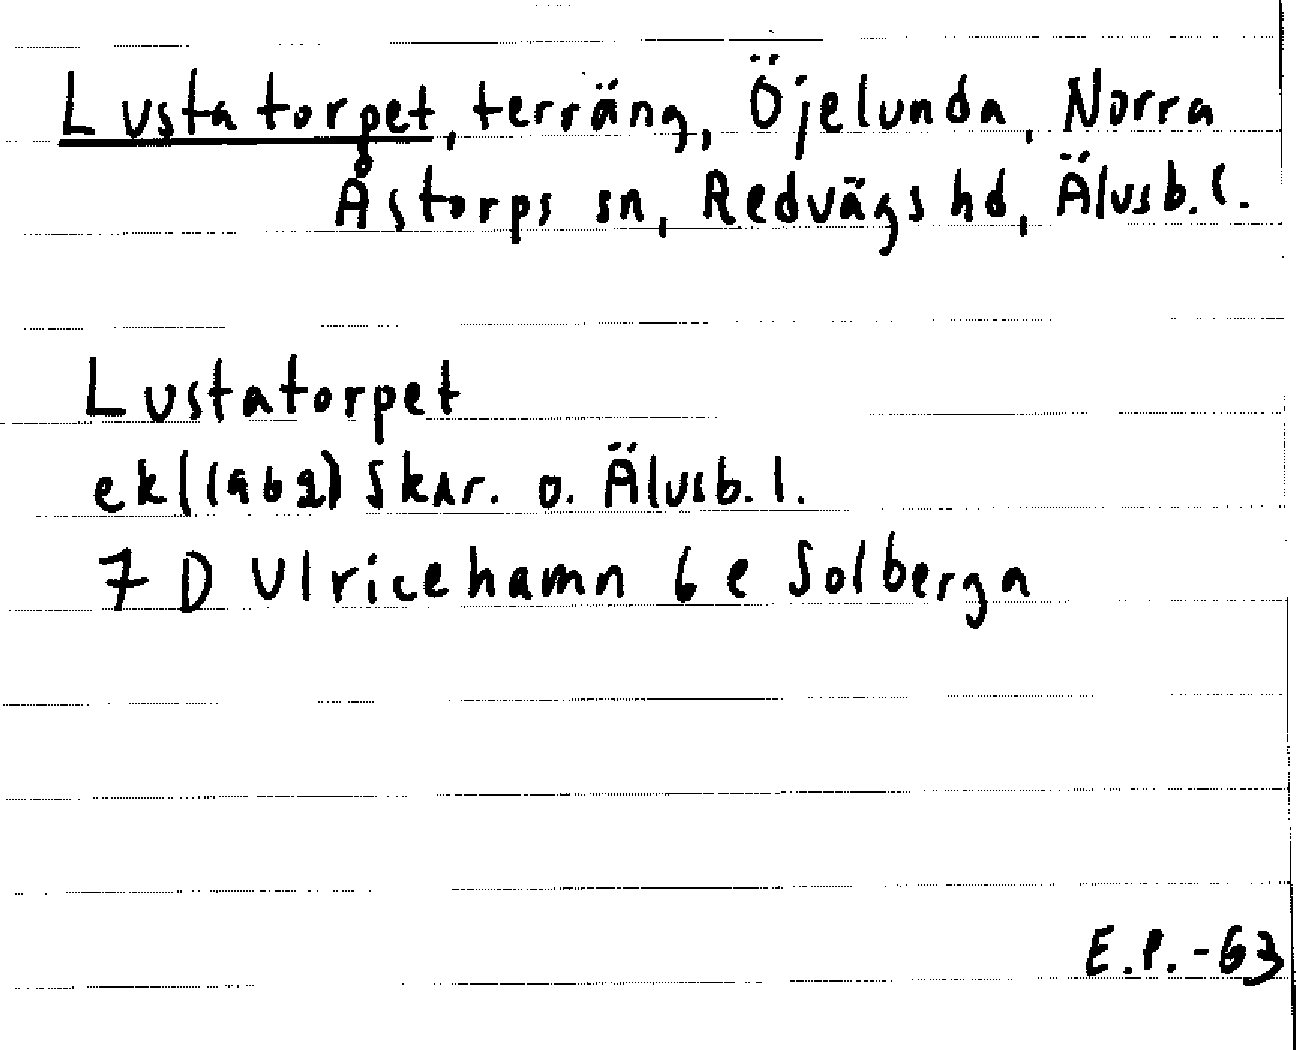 Lustatorpet, terräng, Öjelunda, Norra
Åstorps sn, Redvägs hd, Älvsb. l.
Lustatorpet
ek (1962) Skar. o. Älvsb. l.
7 D Ulricehamn 6 e Solberga
E.P.-63